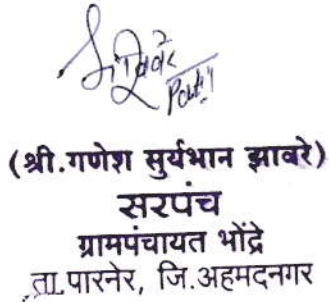 (श्री.गणेश सुर्यभान झावरे)
सरपंच
ग्रामपंचायत भोंद्रे
ता.पारनेर, जि.अहमदनगर